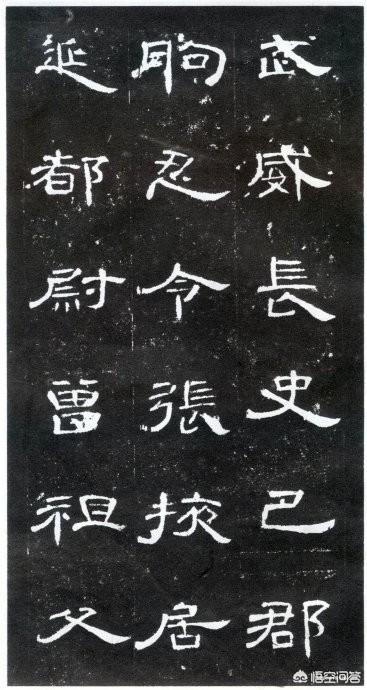 武威長史巴郡
朐忍令張掖居
延都尉曾祖父
悟空问答